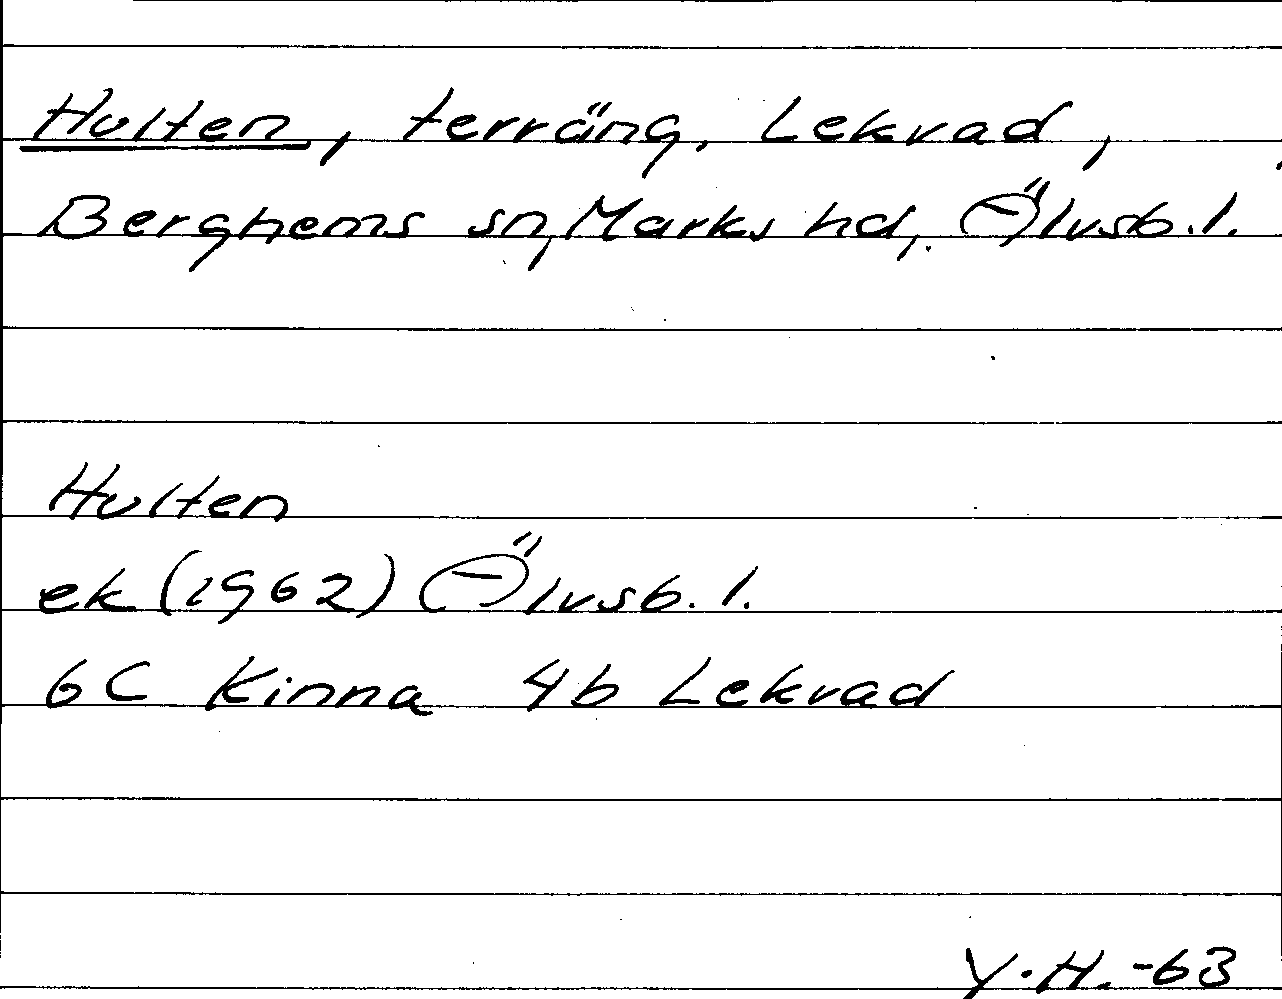 Hulten, terräng, Lekvad,
Berghems sn, Marks hd, Älvsb. l.
Hulten
ek (1962) Älvsb. l.
6C Kinna 4b Lekvad
Y. H. -63